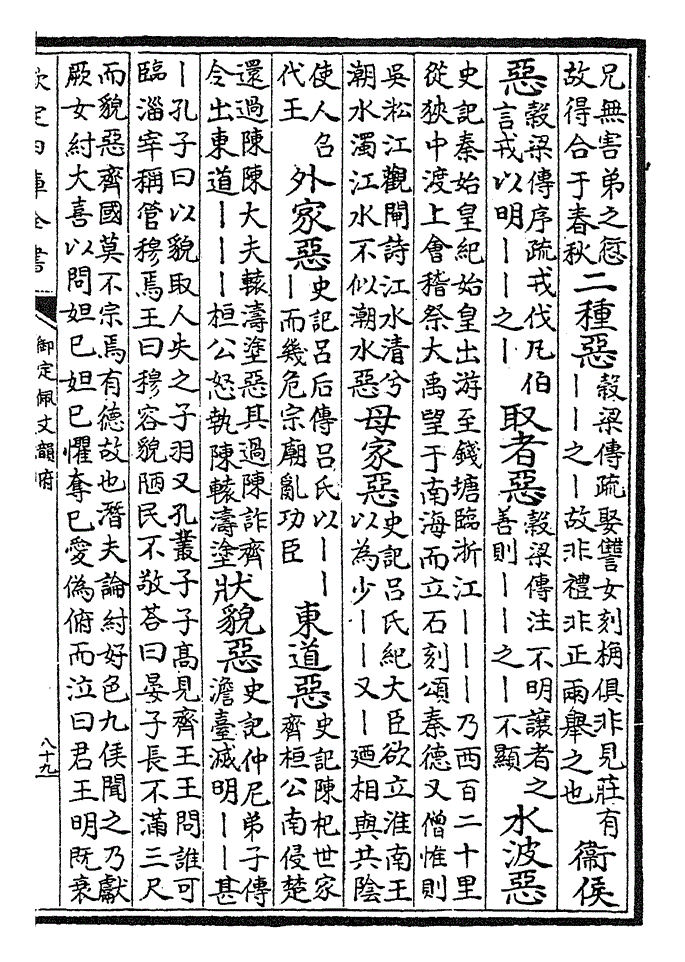 兄無害弟之愆故得合于春秋二種惡穀梁傳疏娶讐女刻桷俱非見莊有丨丨之丨故非禮非正兩舉之也衞侯
惡穀梁傳序疏戎伐凡伯言戎以明丨丨之丨取者惡穀梁傳注不明讓者之善則丨丨之丨不顯水波惡
史記秦始皇紀始皇出游至錢塘臨浙江丨丨丨乃西百二十里從狹中渡上會稽祭大禹望于南海而立石刻頌秦德又僧惟則
吳淞江觀閘詩江水清兮潮水濁江水不似潮水惡母家惡史記呂氏紀大臣欲立淮南王以為少丨丨又丨廼相與共陰
使人召代王外家惡史記呂后傳呂氏以丨丨丨而幾危宗廟亂功臣東道惡史記陳杞世家齊桓公南侵楚
還過陳陳大夫轅濤塗惡其過陳詐齊令出東道丨丨丨桓公怒執陳轅濤塗狀貌惡史記仲尼弟子傳澹臺滅明丨丨甚
丨孔子曰以貌取人失之子羽又孔叢子子高見齊王王問誰可臨淄宰稱管穆焉王曰穆容貌陋民不敬荅曰晏子長不滿三尺
而貌惡齊國莫不宗焉有德故也潛夫論紂好色九侯聞之乃獻厥女紂大喜以問妲己妲己懼奪己愛偽俯而泣曰君王明既衰
欽定四庫全書
御定佩文韻府
八十九